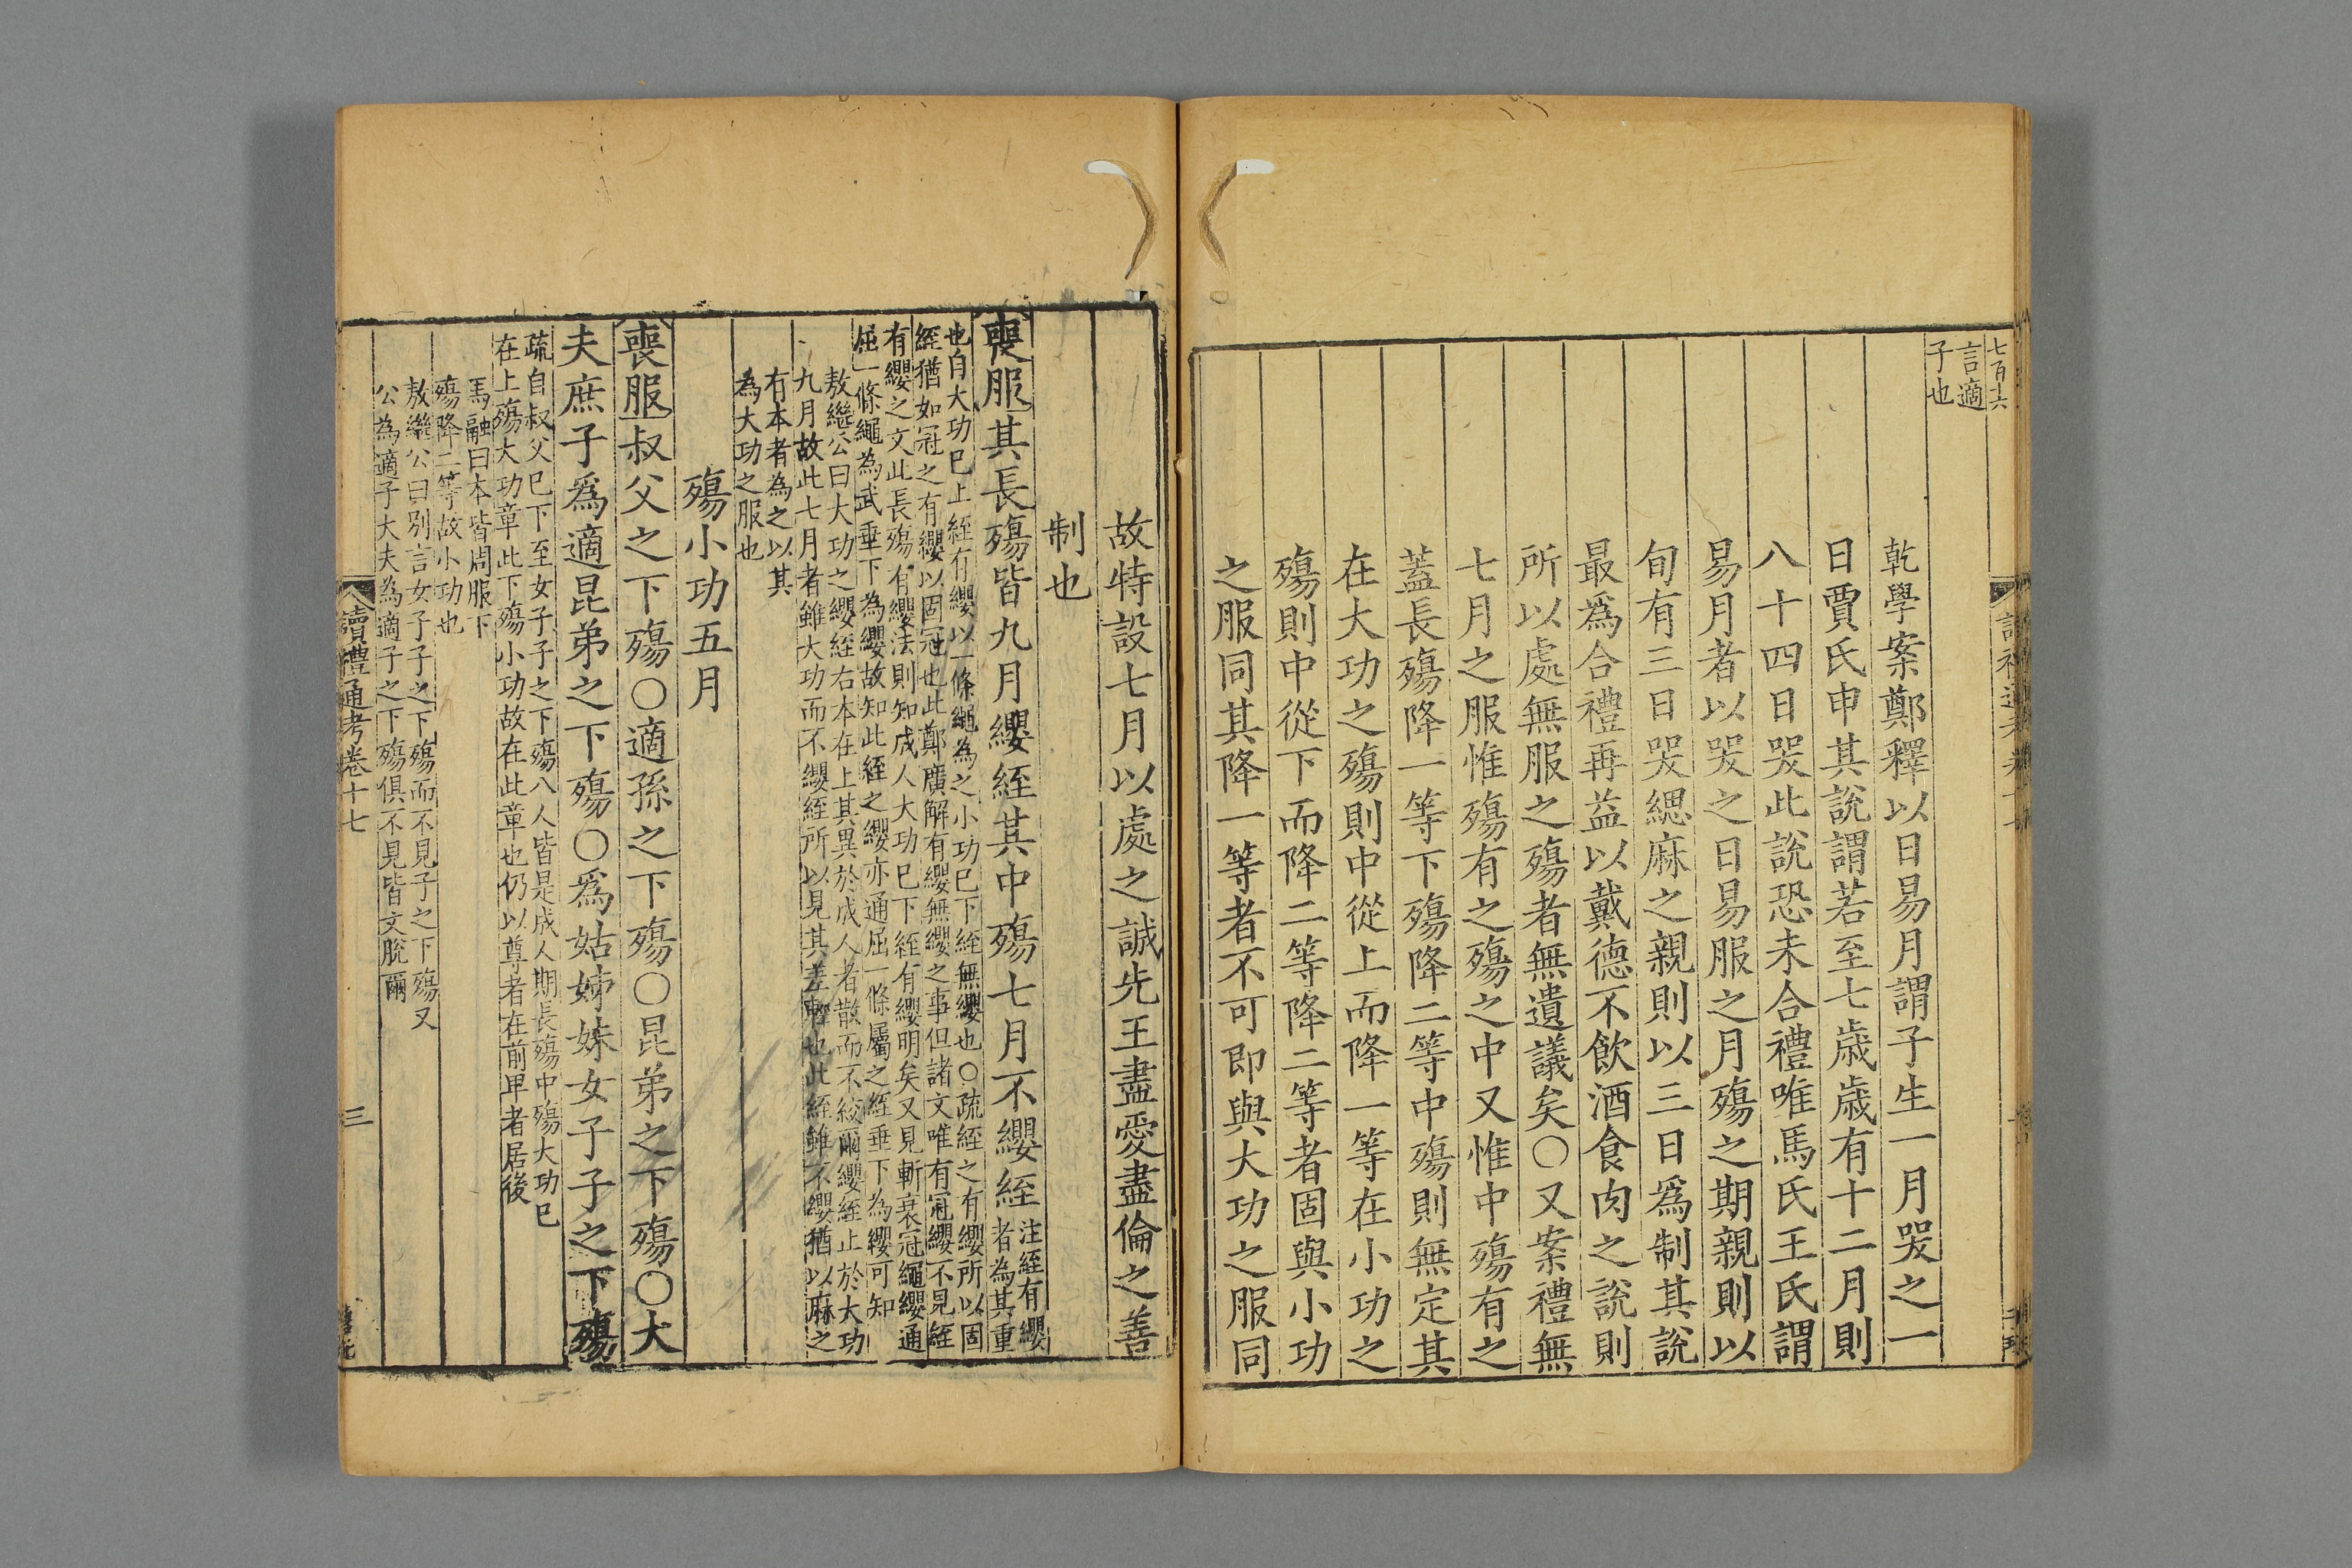 七百十六
言適
子也
乾學案鄭釋以日易月謂子生一月哭之一
日賈氏申其說謂若至七歲歲有十二月則
八十四日哭此說恐未合禮唯馬氏王氏謂
易月者以哭之日易服之月殤之期親則以
旬有三日哭緦麻之親則以三日爲制其說
最爲合禮再益以戴德不飲酒食肉之說則
所以處無服之殤者無遺議矣○又案禮無
七月之服惟殤有之殤之中又惟中殤有之
蓋長殤降一等下殤降二等中殤則無定其
在大功之殤則中從上而降一等在小功之
殤則中從下而降二等降二等者固與小功
之服同其降一等者不可即與大功之服同
故特設七月以處之誠先王盡愛盡倫之善
制也
喪服其長殤皆九月纓絰其中殤七月不纓絰
注絰有纓
者為其重
也自大功已上絰有纓以一條繩為之小功已下絰無纓也○疏絰之有纓所以固
絰猶如冠之有纓以固冠也此鄭廣解有纓無纓之事但諸文唯有冠纓不見絰
有纓之文此長殤有纓法則知成人大功已下絰有纓明矣又見斬衰冠繩纓通
屈一條繩為武垂下為纓故知此絰之纓亦通屈一條屬之絰垂下為纓可知
敖繼公曰大功之纓絰右本在上其異於成人者散而不絞爾纓絰止於大功
九月故此七月者雖大功而不纓絰所以見其差輕也此絰雖不纓猶以麻之
有本者為之以其
為大功之服也
殤小功五月
喪服叔父之下殤○適孫之下殤○昆弟之下殤○大
夫庶子爲適昆弟之下殤○爲姑姊妹女子子之下殤
疏自叔父已下至女子子之下殤八人皆是成人期長殤中殤大功已
在上殤大功章此下殤小功故在此章也仍以尊者在前卑者居後
馬融曰本皆周服下
殤降二等故小功也
敖繼公曰別言女子子之下殤而不見子之下殤又
公為適子大夫為適子之下殤俱不見皆文脫爾
讀禮通考卷十七
三